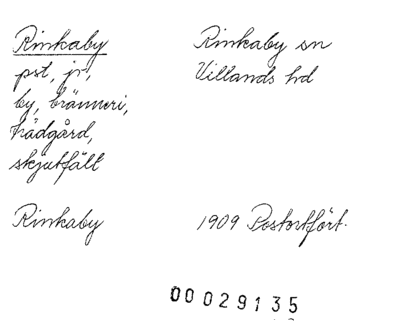 Rinkaby Rinkaby sn
pst, jr, Villands hd
by, bränneri,
trädgård,
skjutfält
Rinkaby 1909 Postortfört.
00029135